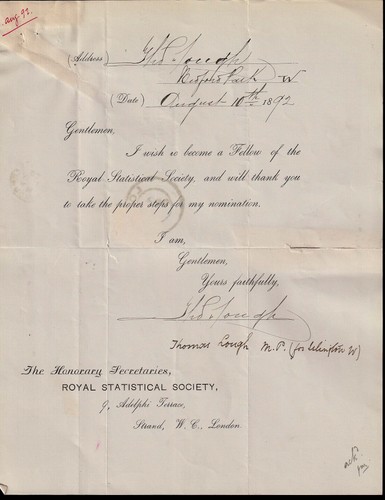 Aug. 92.
(Address) Tho Lough
Bedford Park W
(Date) August 10th 1892
Gentlemen,
I wish to become a Fellow of the
Royal Statistical Society, and will thank you
to take the proper steps for my nomination.
I am,
Gentlemen,
Yours faithfully,
Tho Lough
Thomas Lough M.P. (for Islington W)
The Honorary Secretaries,
ROYAL STATISTICAL SOCIETY,
9, Adelphi Terrace,
Strand, W.C., London.